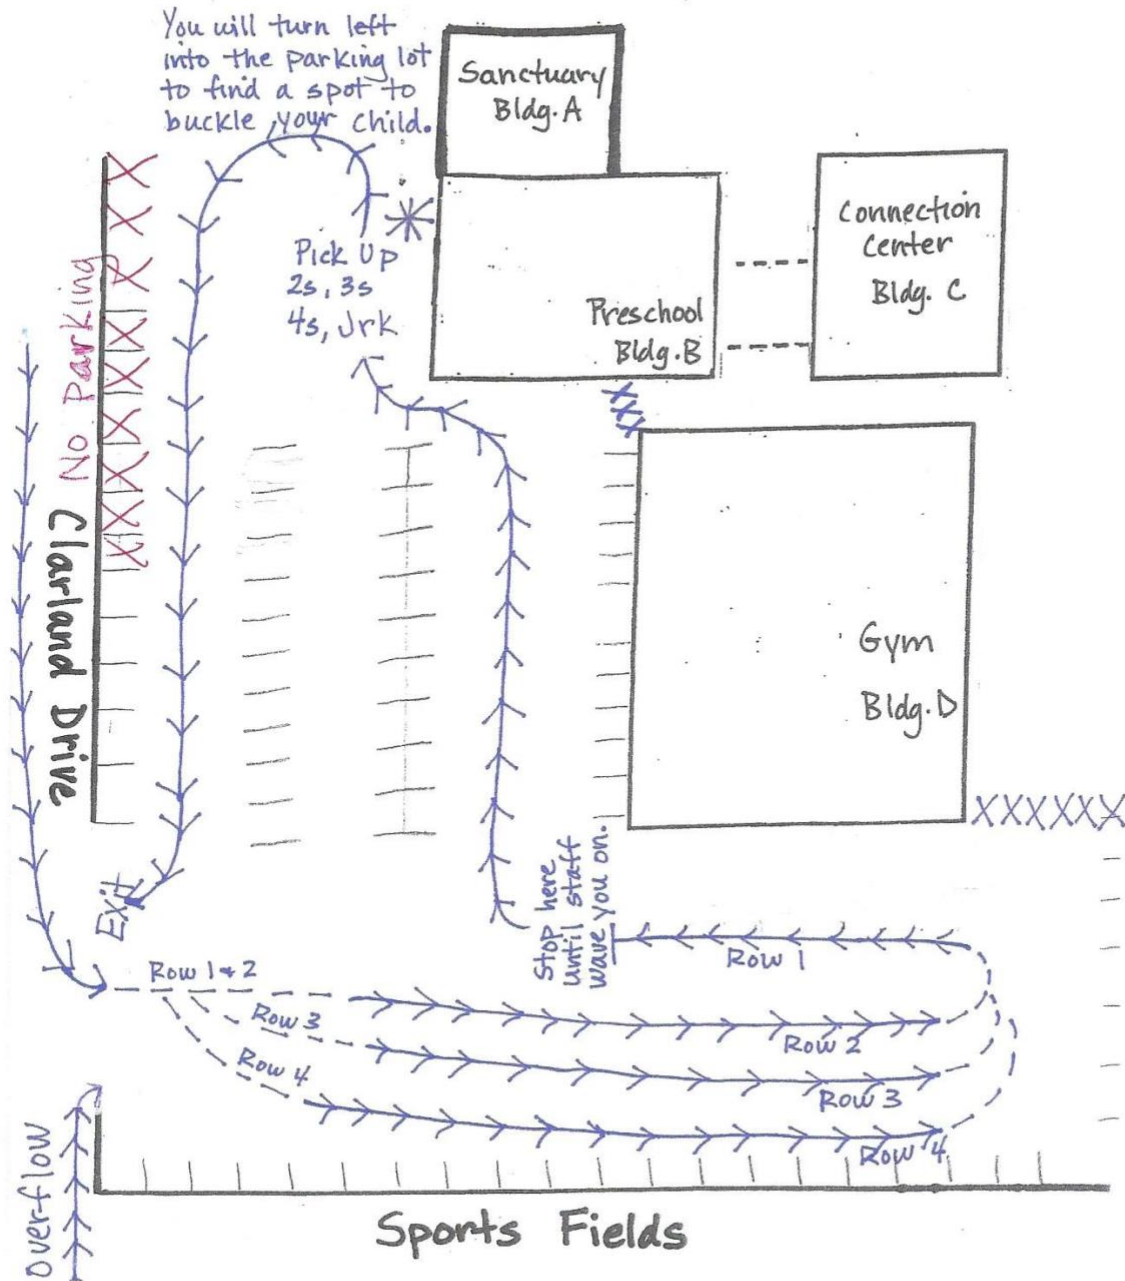 You will turn left
into the parking lot
to find a spot to
buckle your child.
Sanctuary
Bldg. A
Connection
Center
Bldg. C
Pick Up
2s, 3s
4s, Jrk
Preschool
Bldg. B
No Parking
Clarland Drive
Gym
Bldg. D
XXX
XXXXXX
Exit
Stop here
until staff
wave you on.
Row 1
Row 1 & 2
Row 3
Row 4
Row 2
Row 3
Row 4
Overflow
Sports Fields